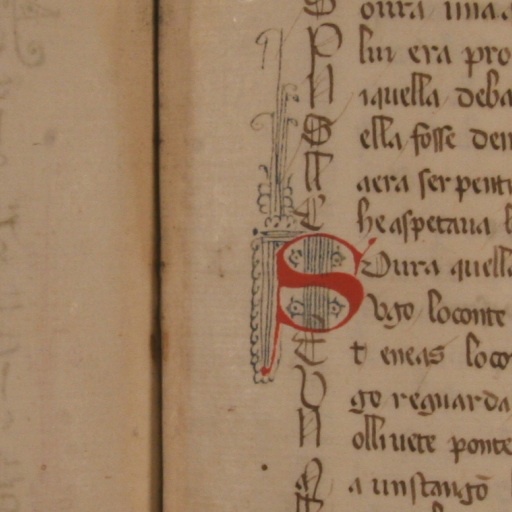 S oura una
P lui era pro
N iquella deba
S ella fosse den
N aera serpenti
C he aspetaua
S Oura quella
Vgo loconte
E t eneas loco
V go reguarda
N olli uete ponte
N a unstangō